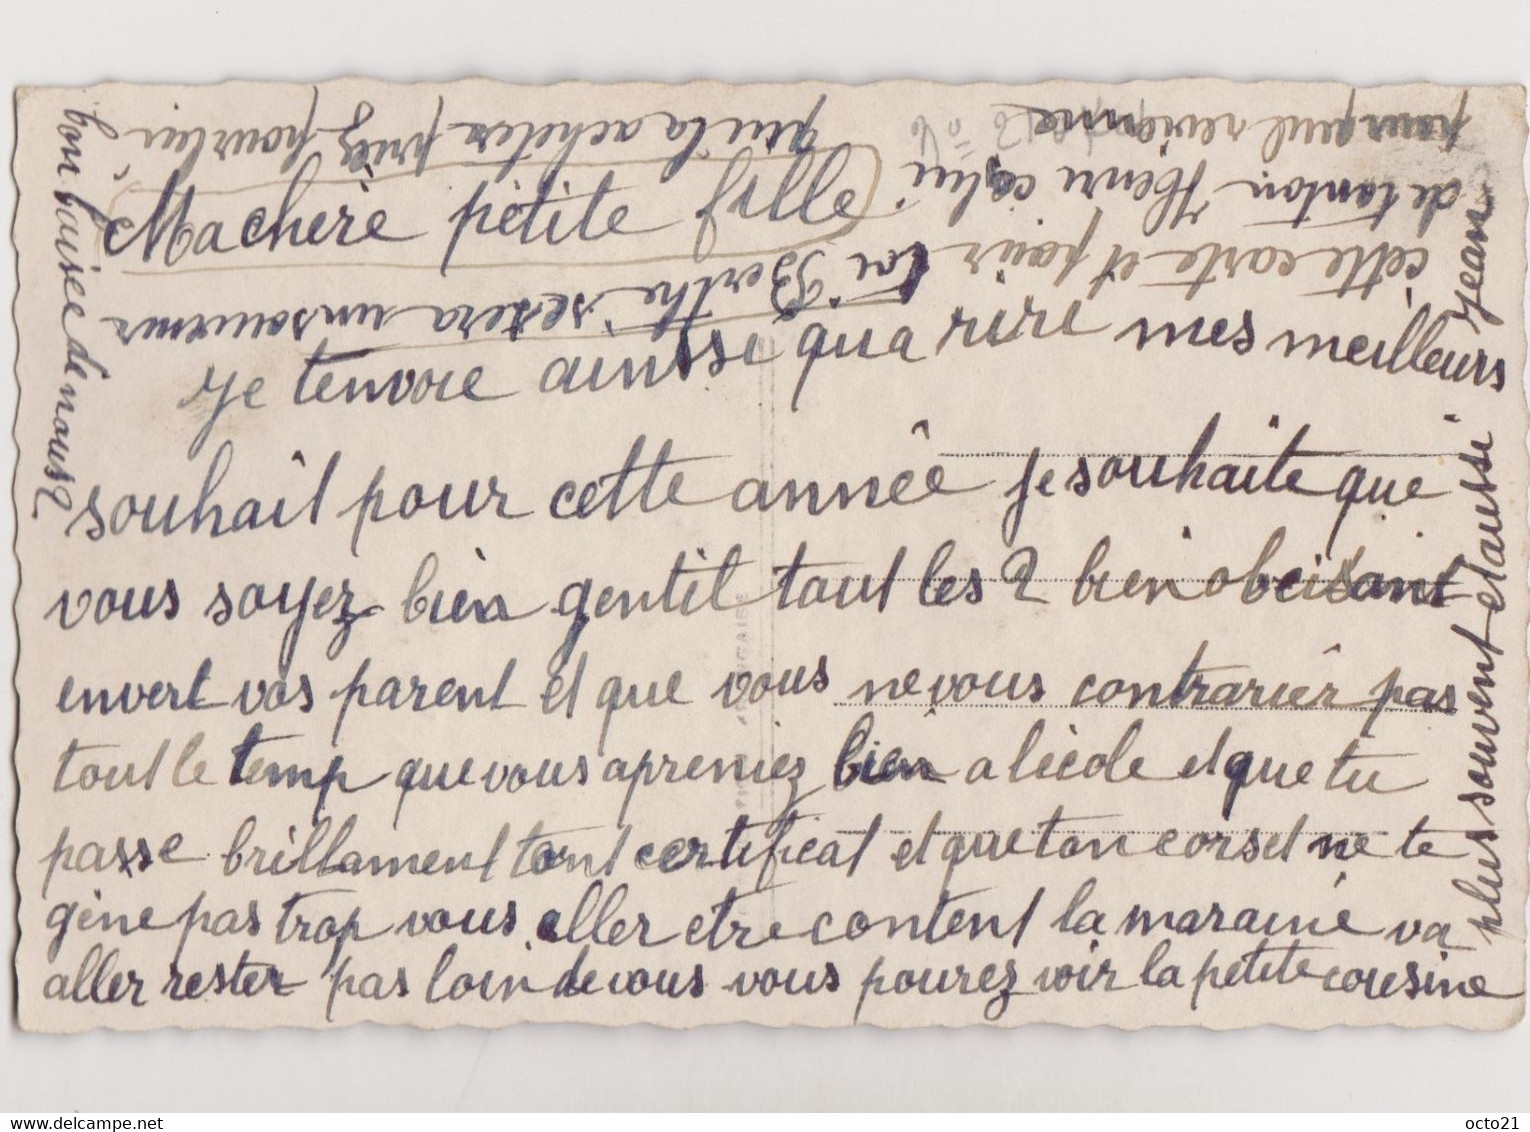 Ma chère pètite fille
Je tenvoie ainssi qu a riri mes meilleurs
souhait pour cette année je souhaite que
vous soyez bien gentil tout les 2 bien obeisant
envert vos parent et que vous ne vous contrarièr pas
tout le temp que vous apreniez bien a l ècole et que tu
passe brillament tont certificat et que ton corset ne te
gène pas trop vous aller etre content la maraine va
aller rester pas loin de vous vous pourez voir la petite cousine
plus souvent et aussi Jean
bon baisée de nous 2
cette carte et pour toi Berthe se sera un souvenir
de tonton Henri celui qui la acheter priez pour lui
pour quil revienne
octo21